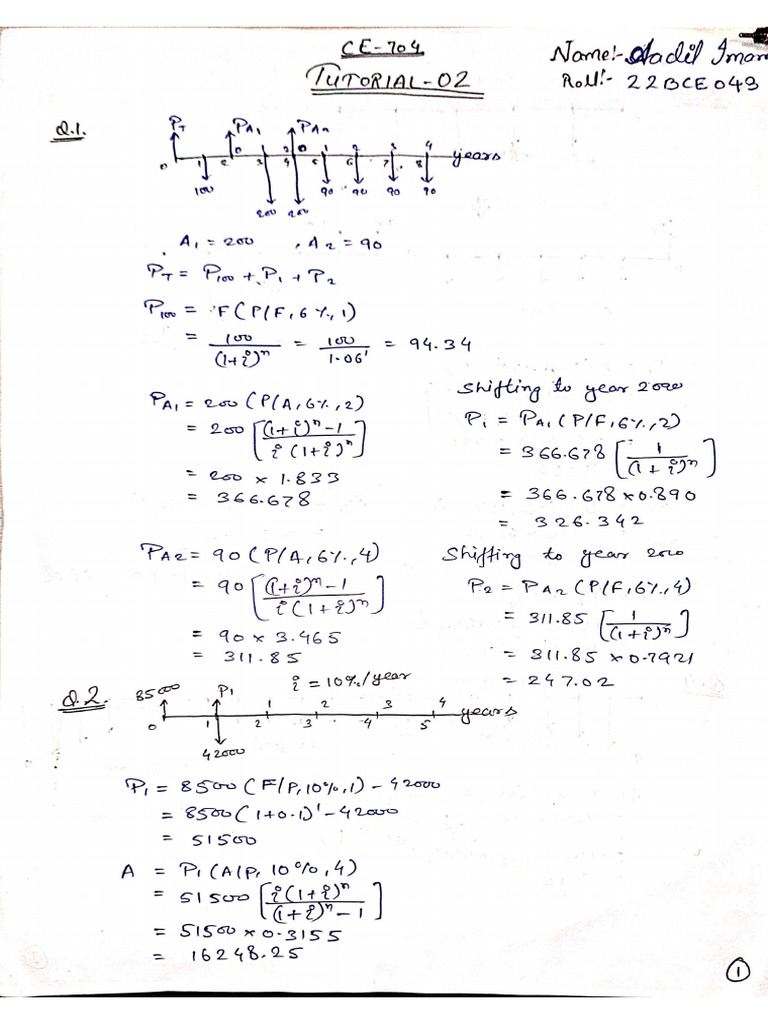 CE-704
TUTORIAL-02
Name:- Aadil Imam
Roll:- 22BCE043
Q.1.
PT PA1 PA2
0 0 2 0 1 2 3 4 years
0 1 2 3 4 5 6 7 8
100 200 200 90 90 90 90
A1 = 200 , A2 = 90
PT = P100 + P1 + P2
P100 = F(P/F, 6%, 1)
= 100/(1+i)^n = 100/1.06^1 = 94.34
PA1 = 200 (P/A, 6%, 2)
= 200 [((1+i)^n - 1)/(i(1+i)^n)]
= 200 × 1.833
= 366.678
Shifting to year zero
Pi = PA1 (P/F, 6%, 2)
= 366.678 [1/(1+i)^n]
= 366.678 × 0.890
= 326.342
PA2 = 90 (P/A, 6%, 4)
= 90 [((1+i)^n - 1)/(i(1+i)^n)]
= 90 × 3.465
= 311.85
Shifting to year zero
P2 = PA2 (P/F, 6%, 4)
= 311.85 [1/(1+i)^n]
= 311.85 × 0.7921
= 247.02
Q.2.
85000 P1 i = 10%/year
1 2 3 4 years
0 1 2 3 4 5
42000
P1 = 8500 (F/P, 10%, 1) - 42000
= 8500 (1+0.1)^1 - 42000
= 51500
A = P1 (A/P, 10%, 4)
= 51500 [(i(1+i)^n)/((1+i)^n - 1)]
= 51500 × 0.3155
= 16248.25
1